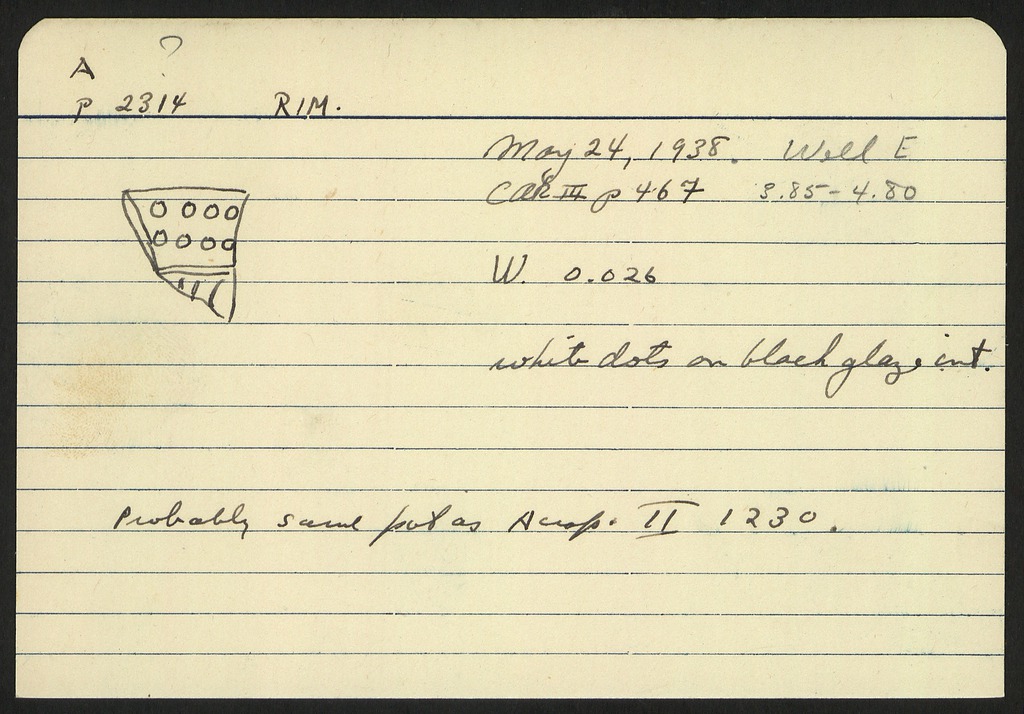 A ?
P 2314 RIM.
May 24, 1938. Well E
III p 467 3.85-4.80
W. 0.026
white dots on black glaze int.
Probably same pot as Acrop. II 1230.